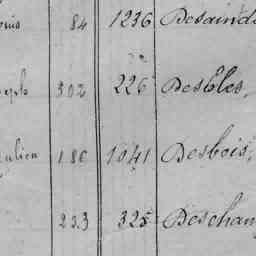 ouis 84 1236 Desaind
eph 302 226 Desbles,
ulien 186 1041 Desbois,
233 325 Descham